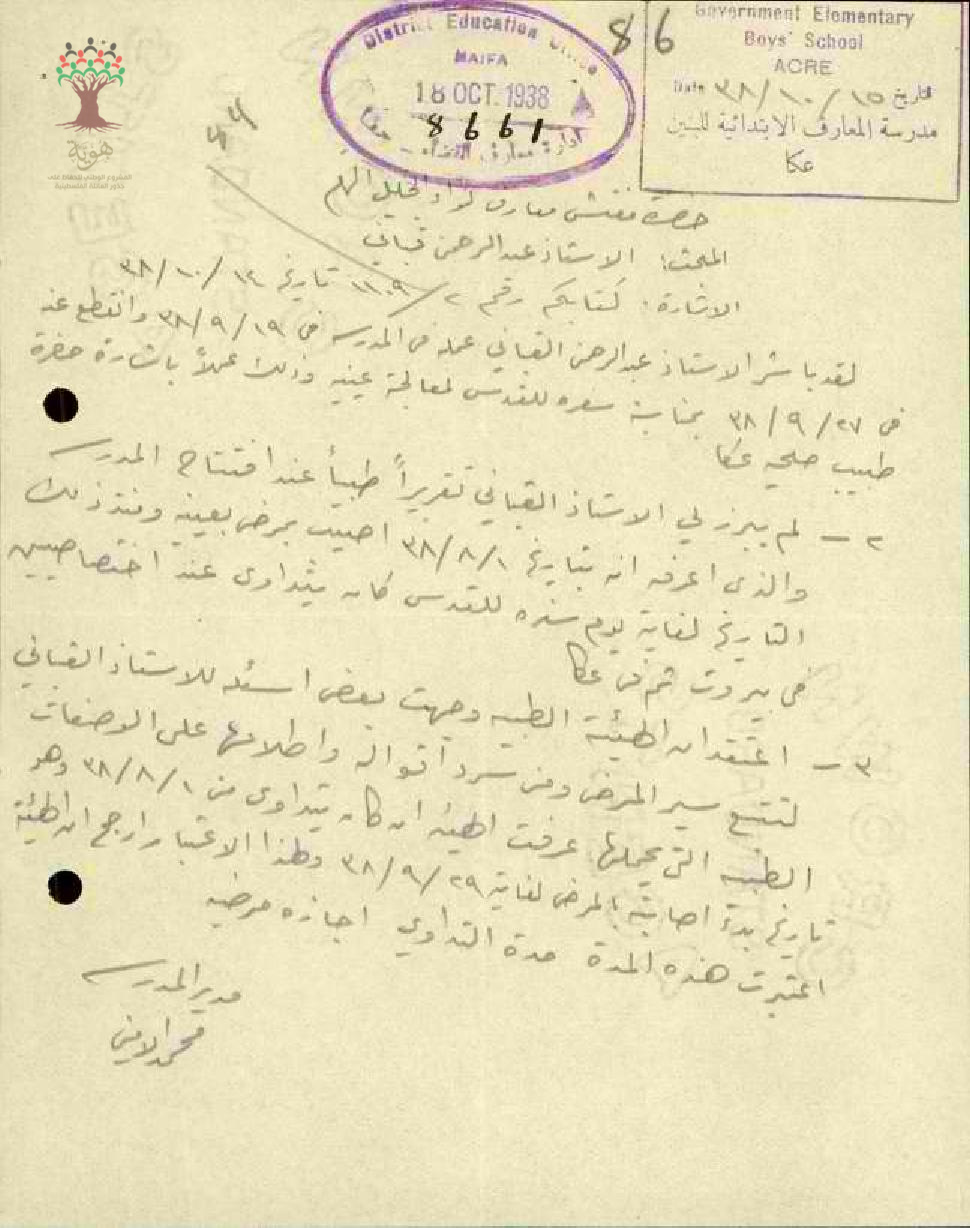 86
Government Elementary
Boys' School
ACRE
Date ٣٨/١٠/١٥ تاريخ
مدرسة المعارف الابتدائية للبنين
عكا
District Education Office
HAIFA
18 OCT. 1938
8661
ادارة معارف القضاء - حيفا
هوية
المشروع الوطني للحفاظ على
جذور العائلة الفلسطينية
حضرة مفتش معارف لواء الجليل
المبحث: الاستاذ عبدالرحمن قباني
الاشارة: كتابكم رقم ٢/١١٠٩ تاريخ ١٢/١٠/٣٨
لقد باشر الاستاذ عبدالرحمن القباني عمله في المدرسه في ١٩/٩/٣٨ وانقطع عنه
في ٢٧/٩/٣٨ بمناسبة سفره للقدس لمعالجة عينيه وذلك عملاً باشارة حضرة
طبيب صحيه عكا
٢ - لم يبرز لي الاستاذ القباني تقريراً طبياً عند افتتاح المدرسه
والذي اعرفه انه بتاريخ ١/٨/٣٨ اصيب بمرض بعينيه ومنذ ذلك
التاريخ لغاية يوم سفره للقدس كان يتداوى عند اختصاصيين
في بيروت ثم في عكا
٣ - اعتقد ان الهيئة الطبيه وجهت بعض اسئله للاستاذ القباني
لتتبع سير المرض ومن سرد اقواله واطلاعها على الوصفات
الطبيه التي يحملها عرفت الهيئه انه كان يتداوى من ١/٨/٣٨ وهو
تاريخ بدء اصابته بالمرض لغاية ٢٩/٩/٣٨ ولهذا الاعتبار ارجح ان الهيئة
اعتبرت هذه المدة مدة التداوي اجازه مرضيه
مدير المدرسه